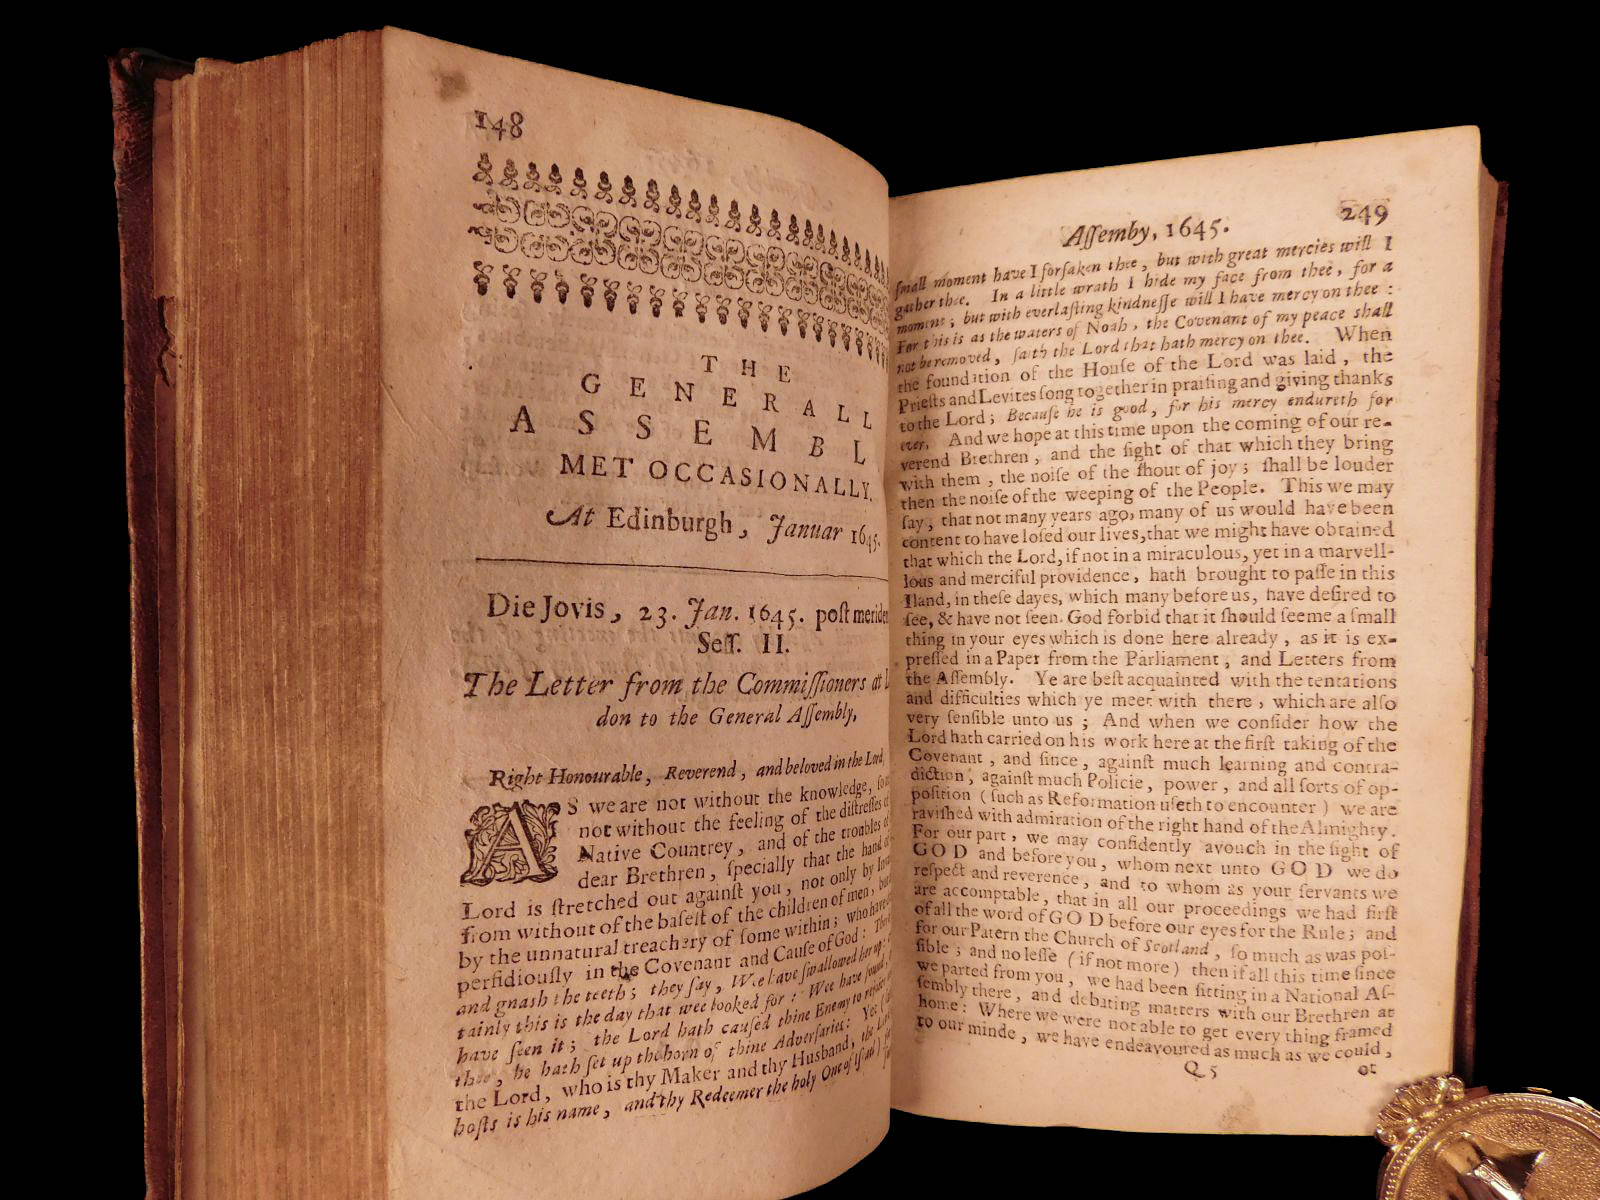 148
THE
GENERALL
ASSEMBL
MET OCCASIONALLY,
At Edinburgh, Januar 1645.
Die Jovis, 23. Jan. 1645. post meride
Sess. II.
The Letter from the Commissioners at L
don to the General Assembly,
Right Honourable, Reverend, and beloved in the Lord,
AS we are not without the knowledge, so
not without the feeling of the distresses o
Native Countrey, and of the troubles of
dear Brethren, specially that the hand o
Lord is stretched out against you, not only by
from without of the basest of the children of men, but
by the unnatural treachery of some within; who have
perfidiously in the Covenant and Cause of God: The
and gnash the teeth; they say, We have swallowed her up:
tainly this is the day that wee looked for: Wee have found,
have seen it; the Lord hath caused thine Enemy to rejoice
thee, he hath set up the horn of thine Adversaries: Yet
the Lord, who is thy Maker and thy Husband, the Lord
hosts is his name, and thy Redeemer the holy One of Israel)
Assemby, 1645. 249
small moment have I forsaken thee, but with great mercies will I
gather thee. In a little wrath I hide my face from thee, for a
moment; but with everlasting kindnesse will I have mercy on thee:
For this is as the waters of Noah, the Covenant of my peace shall
not be removed, saith the Lord that hath mercy on thee. When
the foundition of the House of the Lord was laid, the
Priests and Levites song together in praising and giving thanks
to the Lord; Because he is good, for his mercy endureth for
ever. And we hope at this time upon the coming of our re-
verend Brethren, and the sight of that which they bring
with them, the noise of the shout of joy; shall be louder
then the noise of the weeping of the People. This we may
say, that not many years ago, many of us would have been
content to have losed our lives, that we might have obtained
that which the Lord, if not in a miraculous, yet in a marvell-
lous and merciful providence, hath brought to passe in this
Iland, in these dayes, which many before us, have desired to
see, & have not seen. God forbid that it should seeme a small
thing in your eyes which is done here already, as it is ex-
pressed in a Paper from the Parliament, and Letters from
the Assembly. Ye are best acquainted with the tentations
and difficulties which ye meet with there, which are also
very sensible unto us; And when we consider how the
Lord hath carried on his work here at the first taking of the
Covenant, and since, against much learning and contra-
diction, against much Policie, power, and all sorts of op-
position (such as Reformation useth to encounter) we are
ravished with admiration of the right hand of the Almighty.
For our part, we may confidently avouch in the sight of
GOD and before you, whom next unto GOD we do
respect and reverence, and to whom as your servants we
are accomptable, that in all our proceedings we had first
of all the word of GOD before our eyes for the Rule; and
for our Patern the Church of Scotland, so much as was pos-
sible; and no lesse (if not more) then if all this time since
we parted from you, we had been sitting in a National As-
sembly there, and debating matters with our Brethren at
home: Where we were not able to get every thing framed
to our minde, we have endeavoured as much as we could,
Q 5 ot